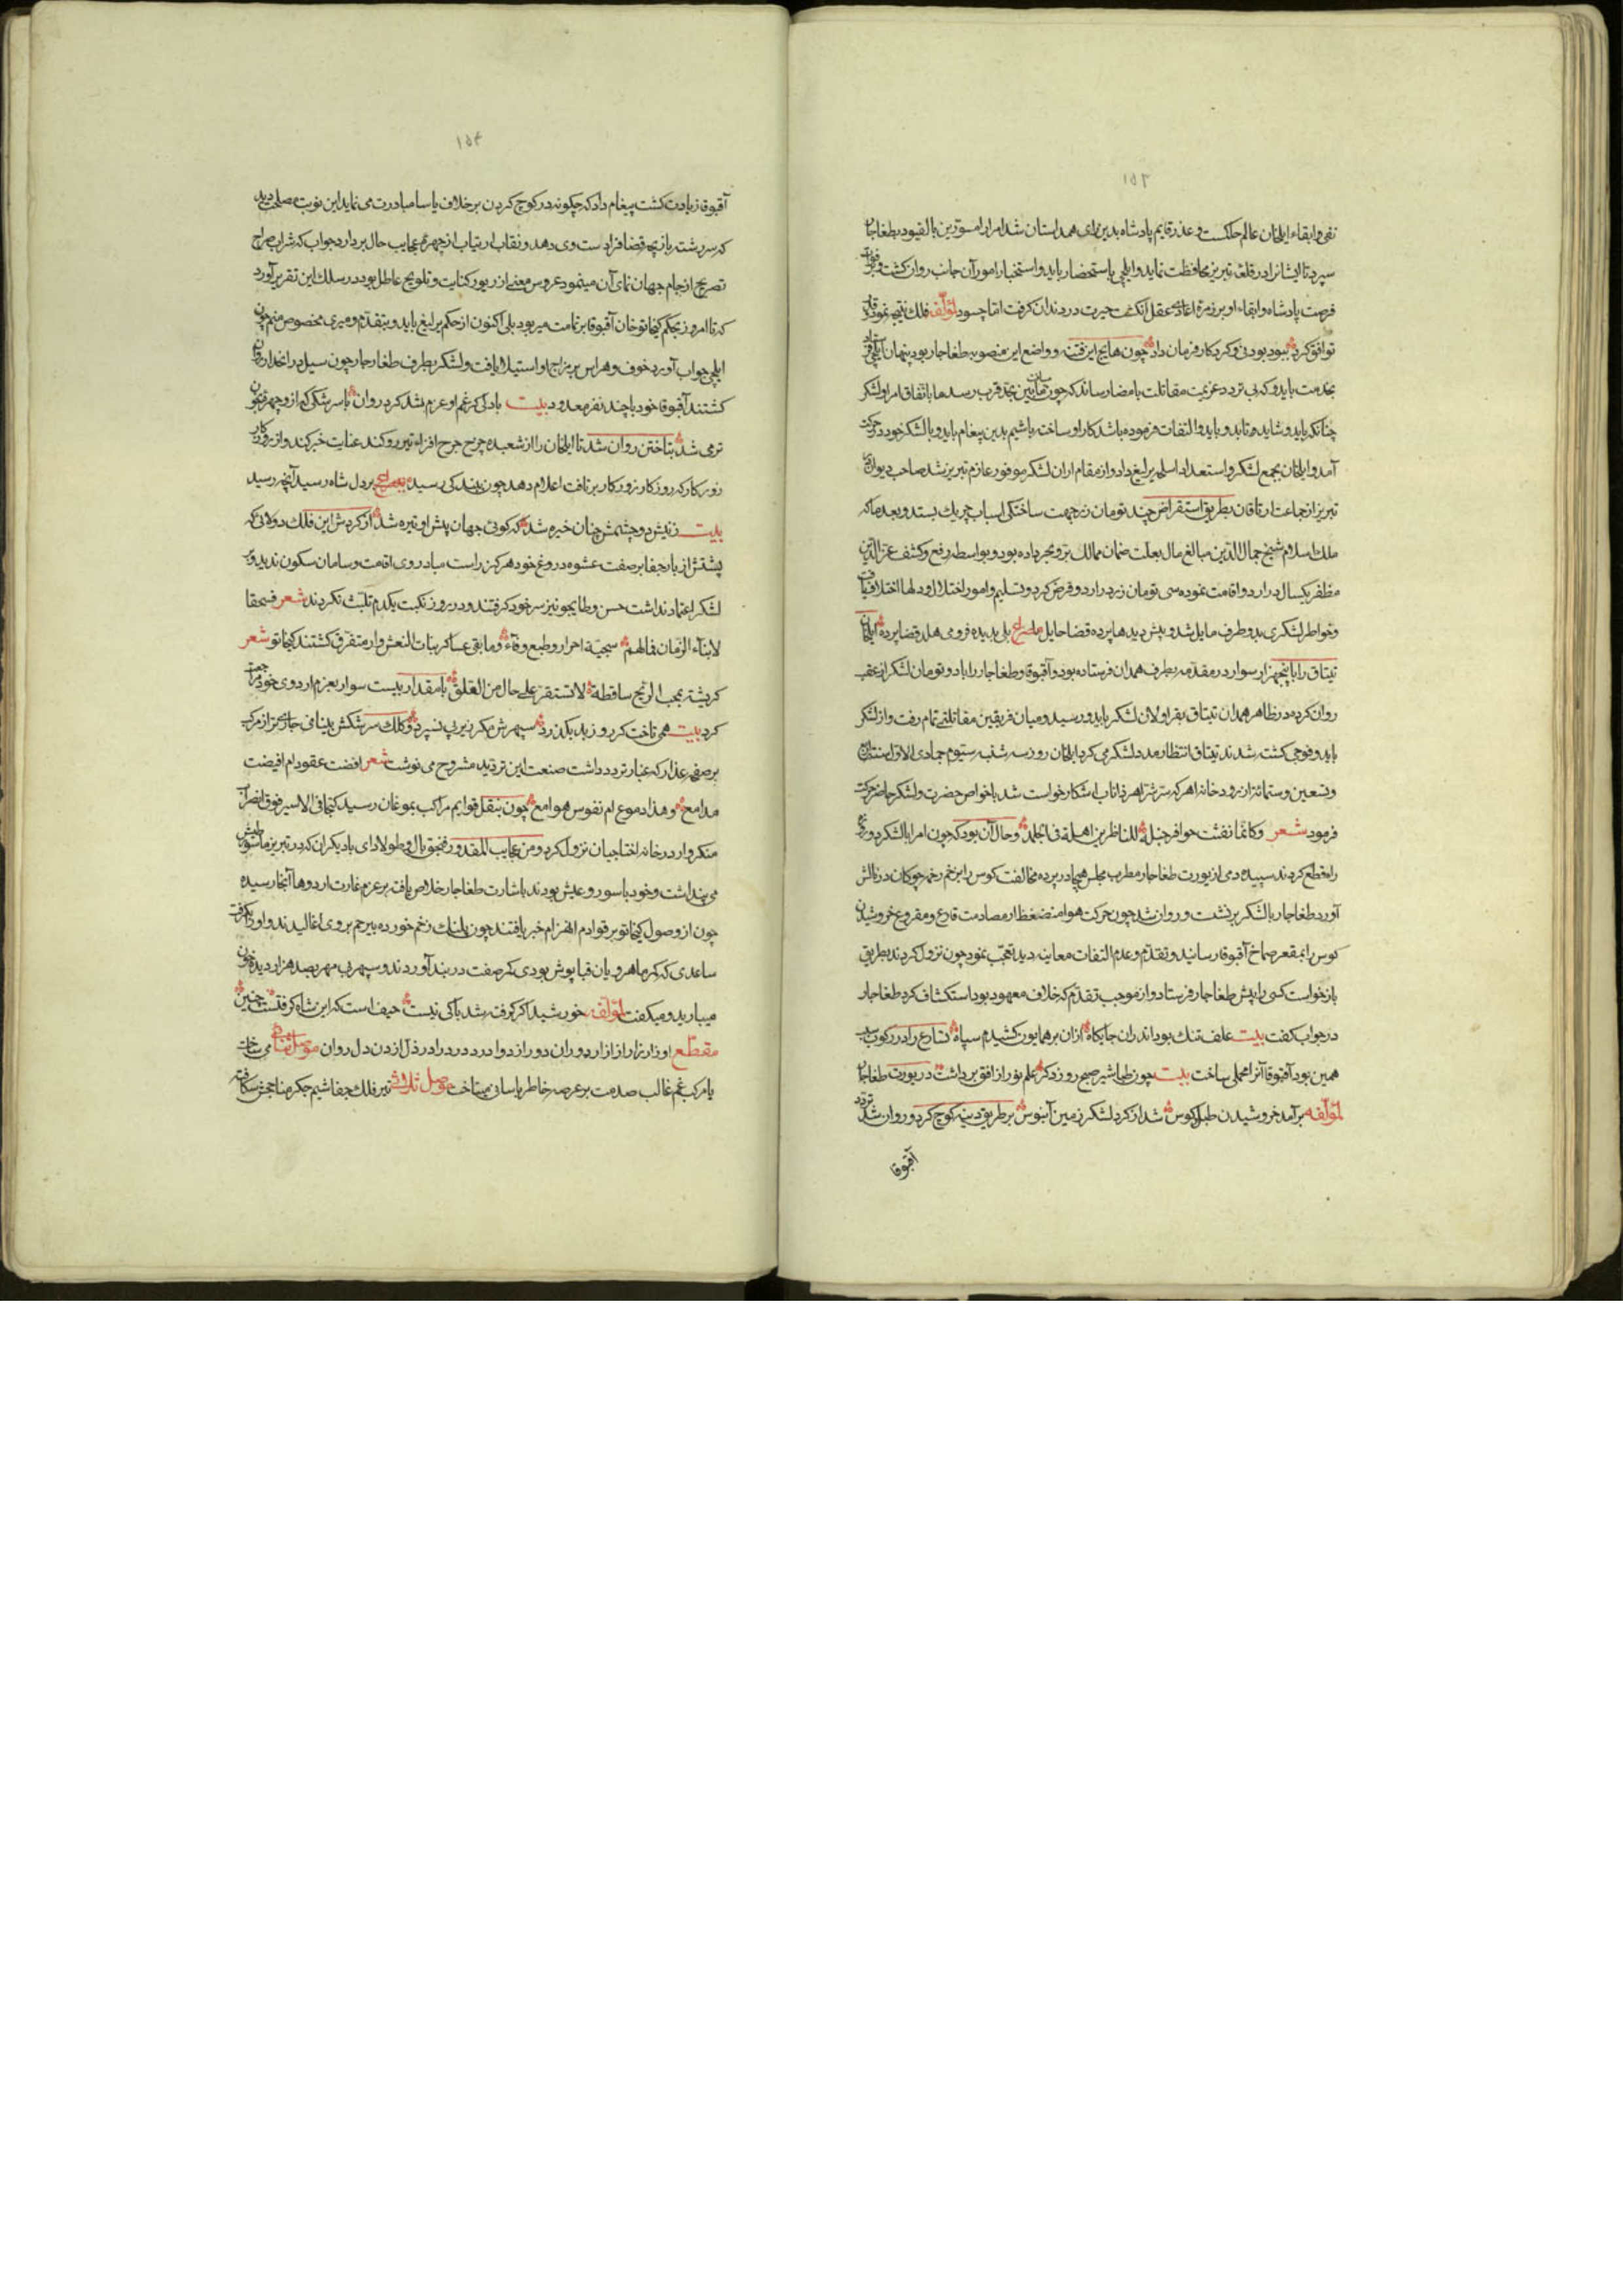 ١٥٣
نفی و ابقاء ایلخان عالم و عذر قایم پادشاه بدین رای همداستان شد امرا را مسوّرین بالقیود بطغاجار
سپرد تا ایشانرا در قلعه تبریز محافظت نماید و ایلچی باستحضار بایدو و استخبار امور آن جانب روان گشت
فرصت پادشاه و ابقاء او بر زمره اعادی عقل انگشت حیرت در دندان گرفت امّا چسود لمؤلّفه فلک نتیجه
توافق کرد نبود بودنی و کردکار فرمان داد چون هایج این فتنه و واضع این منصوبه طغاجار بود پنهان ایلچی
بخدمت بایدو که بی تردد عزیمت مقاتلت بامضا رساند که چون میان مابین بحدّ قرب رسد ها باتّفاق امرا و لشکر
چنانکه باید و شاید و بایدو التفات فرموده باشد کار او ساخته باشیم بدین پیغام بایدو با لشکر خود در حرکت
آمد و ایلخان بجمع لشکر و استعداد اسلحه یرلیغ داد و از مقام اران لشکر موفور عازم تبریز شد صاحب دیوان
تبریز از جماعت ارتاقان بطریق استقراض چند تومان زر جهت ساختگی اسباب چریک بستد و بعد ما که
ملک اسلام شیخ جمال الدّین مبالغ مال بعلت ضمان ممالک برّ و بحر داده بود و بواسطه رفع و کشف عزّ الدّین
مظفر یکسال در اردو اقامت نموده سی تومان زر در اردو قرض کرد و تسلیم و امور اختلال و دلها اختلاف یافت
و خواطر لشکری بدو طرف مایل شد و پیش دیدها پرده قضا حایل مصراع بلی بدیده فرو می هلد قضا پرده ایلخان
تیتاق را با پنجهزار سوار در مقدّمه بطرف همدان فرستاده بود و آقبوقا و طغاجار را با دو تومان لشکر از عقب
روان کرده در ظاهر همدان تیتاق بقراولان لشکر بایدو رسید و میان فریقین مقاتلتی تمام رفت و از لشکر
بایدو فوجی کشته شدند تیتاق انتظار مدد لشکر می کرد ایلخان روز سه شنبه سیّوم جمادی الاوّل سنه ثلاث
و تسعین و ستمائة از رودخانه اهر که باشکار خواست شد با خواص حضرت و لشکر حاضر حرکت
فرمود شعر و کانّما نقشت حوافر خیله للناظرین اهلة فی الجلمد و حال آن بود که چون امرا با لشکر
را قطع کردند سپیده دمی از یورت طغاجار مطرب مجلس هیجا در پرده مخالفت کوس را بزخم زخمه چوکان در نالش
آورد طغاجار با لشکر برنشست و روان شد چون حرکت هوا منضغط از مصادمت قارع و مقروع خروشیدن
کوس را بمقعر صماخ آقبوقا رسانید و تقدّم و عدم التفات معاینه دید تعجّب نمود چون نزول کردند بطریق
بازخواست کسی را پیش طغاجار فرستاد و از موجب تقدّم که خلاف معهود بود استکشاف کرد طغاجار
در جواب گفت بیت علف تنک بود اندران جایگاه ازان بر همایون کشیدم سپاه تسارع را در رکوب سبب
همین بود آقبوقا آنرا محملی ساخت بیت چون طباشیر صبح روز دگر علم نور از افق برداشت در یورت طغاجار
لمؤلّفه برآمد خروشیدن طبل و کوس شد از کرد لشکر زمین آبنوس بر طریق دینه کوچ کرد و روان شد تردّد
آقبوقا
١٥٤
آقبوقا زیادت گشت پیغام داد که چگونه در کوچ کردن بر خلاف یاسا مبادرت می نماید این نوبت مصلحت دید
که سر رشته بازیچه قضا فرا دست وی دهد و نقاب ارتیاب از چهره عجایب حال بردارد جواب که شراب صراح
تصریح از جام جهان نمای آن مینمود عروس معنی از زیور کنایت و تلویح عاطل بود در سلک این تقریر آورد
که تا امروز بحکم کیخاتو خان آقبوقا بر تمامت میر بود بلی اکنون از حکم یرلیغ بایدو بتقدّم و میری مخصوص منم چون
ایلچی جواب آورد خوف و هراس بر مزاج او استیلا یافت و لشکر بطرف طغاجار چون سیل در انحدار روان
گشتند آقبوقا خود با چند نفر معدود بیت بادلی کز غم او عزم شد کرد روان با سرشکی که ازو چهره
تر می شد بتاختن روان شد تا ایلخان را از شعبده چرخ چرخ افزای تیررو کند عنایت خبر کند و از روزکار
زورکار که روز کار زورکار برتافت اعلام دهد چون ببندکی رسید مصراع بر دل شاه رسید آنچه رسید
بیت زنیش دو چشمش چنان خیره شد که کوئی جهان پیش او تیره شد از کردش این فلک دولابی که
پشتش از بار جفا بر صفت عشوه دروغ خود هرکز راست مباد روی اقامت و سامان سکون ندید و بر
لشکر اعتماد نداشت حسن و طایجو نیز سر خود گرفتند و در روز نکبت یکدم تلبّث نکردند شعر فسحقا
لابنآء الزّمان فما لهم سجیّة احرار و طبع وفاء و مابقی عساکر بنات النعش وار متفرق گشتند کیخاتو شعر
کریشة بمهب الریح ساقطة لا تستقر علی حال من القلق با مقدار بیست سوار بعزم اردوی خود مراجعت
کرد بیت همی تاخت کرد و زبد بکذرد سپهرش مکر زیر پی نسپرد و کلک سرشکش بینامی جاری از مرکب
بر صفحه عذار که غبار تردد داشت صنعت این تردید مشروح می نوشت شعر افضت عقود ام افیضت
مدامع و هذا دموع ام نفوس هوامع چون بنقل قوایم مراکب بموغان رسید کیخاتو الاسیر فوق
متکروار در خانه اختاجیان نزول کرد و من عجایب المقدور و طولادای با دیکران که در تبریز
می پنداشت و خود با سور و عیش بودند باشارت طغاجار خلاص یافته بر عزم غارت اردوها آنجا رسیده
چون از وصول کیخاتو بر قوادم انهزام خبر یافتند چون پلنک زخم خورده بیرحم بروی اغالیدند و او را بگرفت
ساعدی که کمر ماهرویان قبا پوش بودی کمر صفت در بند آوردند و سپهر بی مهر بصد هزار دیده خون
میبارید و میکفت لمؤلّفه خورشید اکر کرفته شد باکی نیست حیف است که این شاه کرفتست چنین
مقطّع او زار زار ازار دوران دور از دوا درد در دراد رذل ازدن دل روان موصل ثنائی می ساخت
با مرکب غم غالب صدمت بر عرصه خاطر یاسائی میتاخت موصل ثلاثی تیر فلک جفا شیم جکر